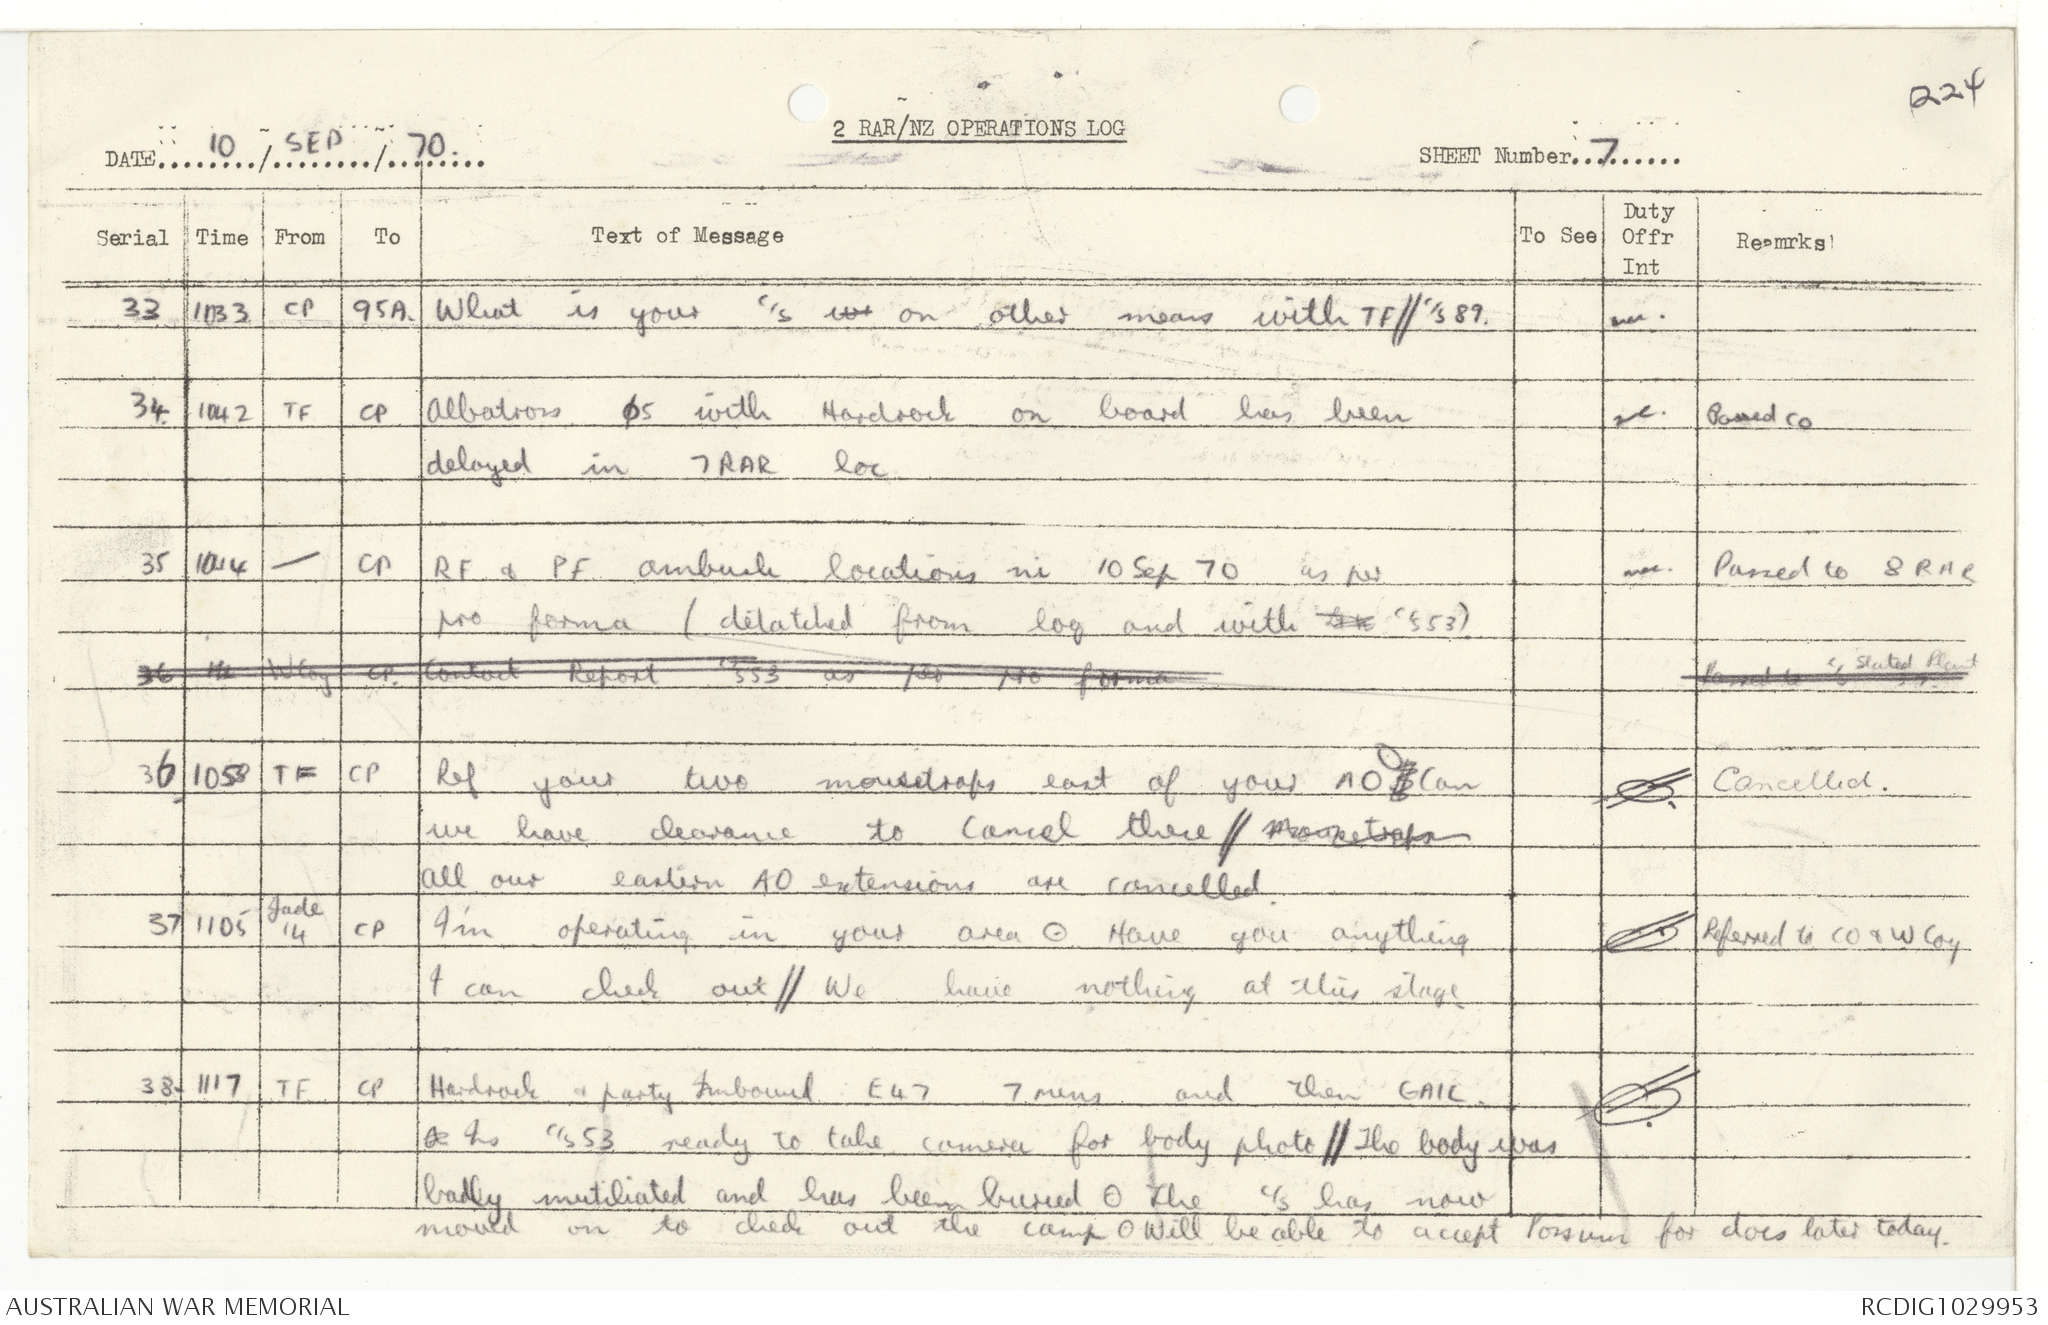 224
2 RAR/NZ OPERATIONS LOG
DATE 10/SEP/70. SHEET Number 7
Serial Time From To Text of Message To See Duty Offr Int Remrks
33 1033 CP 95A. What is your c/s on other means with TF // c/s 89.
34. 1042 TF CP Albatross 05 with Hardrock on board has been Passed CO
delayed in 7RAR loc
35 1044 — CP RF & PF ambush locations ni 10 Sep 70 as per Passed to 8 RAR
pro forma (detatched from log and with c/s 53).
36 W Coy CP. Contact Report c/s 53 as per pro forma Passed to
36 1058 TF CP Ref your two mousetraps east of your AO Can Cancelled.
we have clearance to cancel these // Mousetraps
all our eastern AO extensions are cancelled.
37 1105 Jade 14 CP I'm operating in your area O Have you anything Referred to CO & W Coy
I can check out // We have nothing at this stage
38. 1117 TF CP Hardrock & party Inbound E47 7 mins and then GAIL.
Is c/s 53 ready to take camera for body photo // The body was
badly mutiliated and has been buried O The c/s has now
moved on to check out the camp O Will be able to accept Possum for docs later today.
AUSTRALIAN WAR MEMORIAL RCDIG1029953